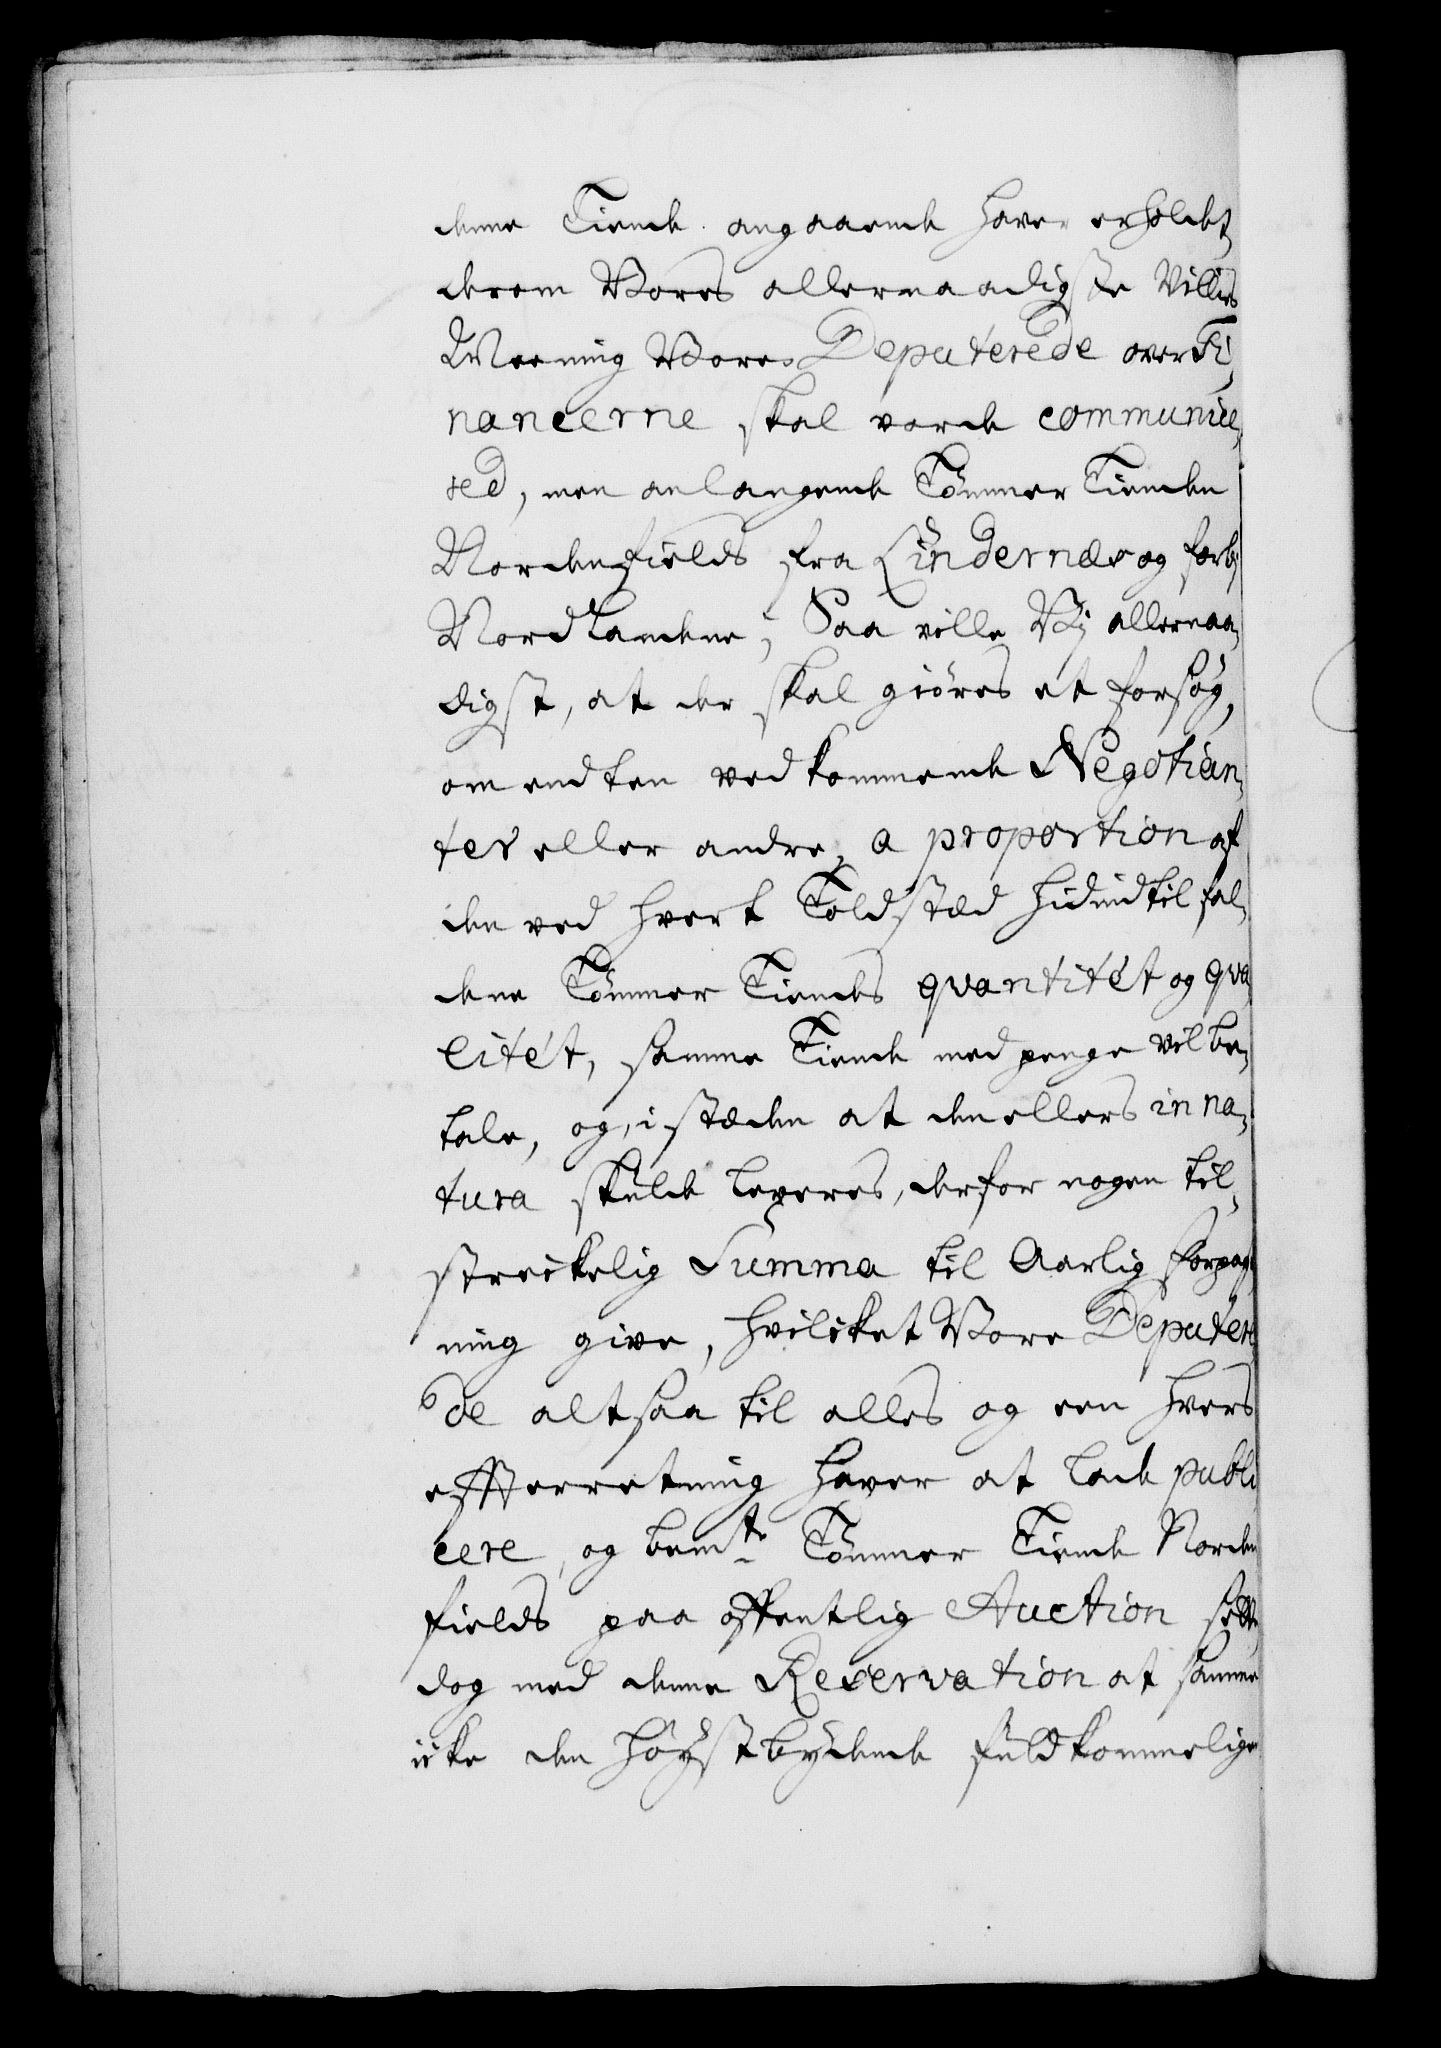 denne Tiende angaaende haver erholdet,
derom Vores allernaadigste Villies
Meening Vores Deputerede over Fi,
nancerne skal vorde communice,
red, men anlangende Tömmer Tienden
Nordenfields fra Lindernæs og forbj
Nordlandene, Saa ville Vj allernaa,
digst, at der skal giöres et forsøg,
om endten vedkommende Negotian,
ter eller andre, a proportion af
den ved hvert Toldstæd hidindtil fal,
dene Tömmer Tiendes qvantitét og qva
litét, samme Tiende med penge vil be,
tale, og, i stæden at den ellers in na,
tura skulde leveres, derfor nogen til,
streikelig Summa til Aarlig forpagt
ning give, hvilcket Vore Deputere
de altsaa til alles og een hvers
efterretning haver at lade publi
cere, og bemte Tömmer Tiende Norden
fields paa offentlig Auction sette,
dog med denne Reservation at samme
icke den höystbydende fuldkommelige